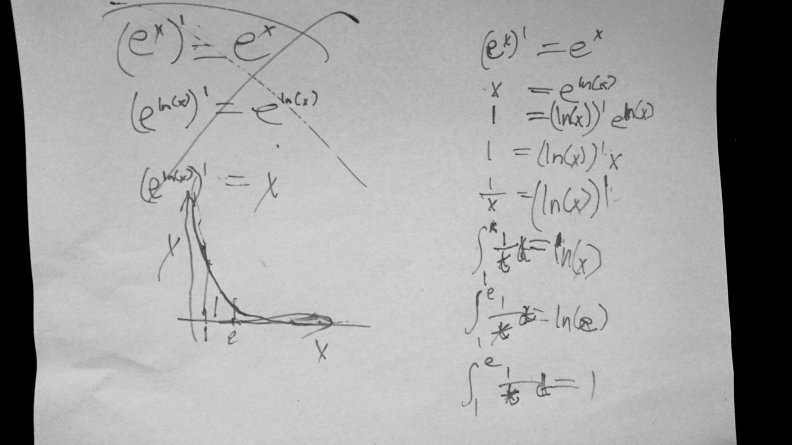 (e^x)' = e^x
(e^ln(x))' = e^ln(x)
(e^ln(x))' = x
x
1
1
e
x
(e^x)' = e^x
x = e^ln(x)
1 = (ln(x))' e^ln(x)
1 = (ln(x))' x
1/x = (ln(x))'
∫_1^x 1/t dt = ln(x)
∫_1^e 1/t dt = ln(e)
∫_1^e 1/t dt = 1